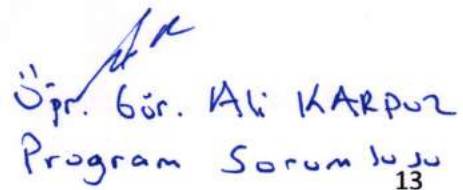 Öğr. Gör. Ali KARPUZ
Program Sorumlusu
13